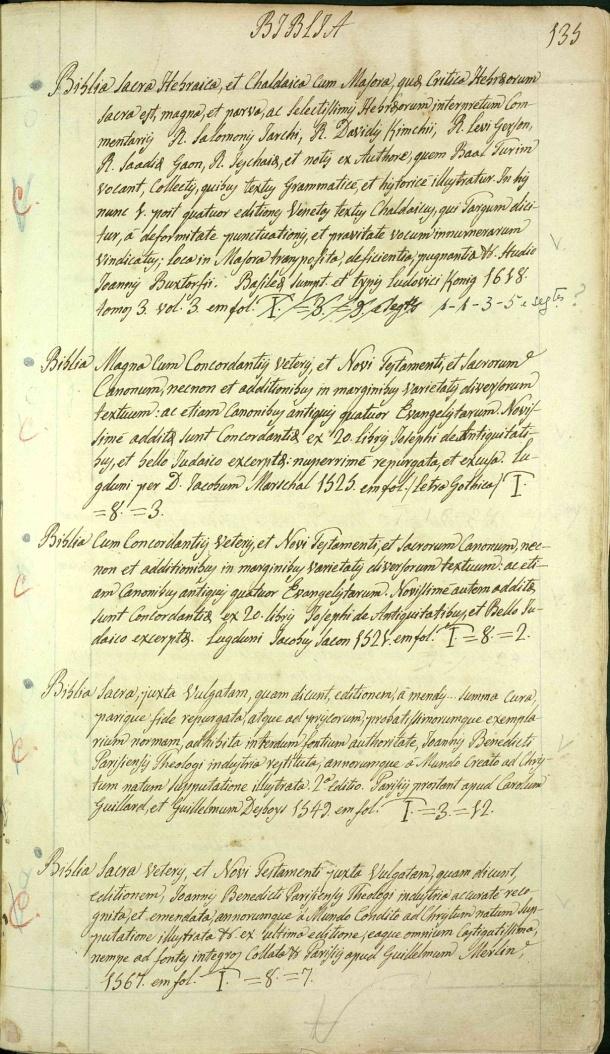 BIBLIA
135
Biblia Sacra Hebraica, et Chaldaica Cum Masora, quæ Critica Hebræorum
sacra est, magna, et parva, ac selectissimis Hebræorum interpretum Com-
mentariis R. Salomonis Jarchi, R. Davidis Kimchii, R. Levi Gerson,
R. Saadiæ Gaon, R. Jeschaiæ, et notis ex Authore, quem Baal Turim
vocant, Collectis, quibus textus Grammaticè, et historicè illustratur. In his
nunc 1. post quatuor editiones Venetas textus Chaldaicus, qui Targum dici-
tur, à deformitate punctuationis, et pravitate vocum innumerarum
vindicatus; loca in Masora transposita, deficientia, pugnantia &c. studio
Joannis Buxtorfii. Basileæ sumpt. et typis Ludovici Konig 1618.
tomos 3. vol. 3. em fol. I. = 8. = 8. e segtes 1-1-3-5 e segtes ?
Biblia Magna Cum Concordantiis Veteris, et Novi Testamenti, et Sacrorum
Canonum, necnon et additionibus in marginibus varietatis diversorum
textuum: ac etiam Canonibus antiquis quatuor Evangelistarum. Novis-
simè additæ sunt Concordantiæ ex 20. libris Josephi de Antiquitati-
bus, et bello Judaico excerptæ: nuperrimè repurgata, et excusa. Lu-
gduni per D. Jacobum Mareschal 1525. em fol. (Letra Gothica) I.
= 8. = 3.
Biblia Cum Concordantiis Veteris, et Novi Testamenti, et Sacrorum Canonum, nec-
non et additionibus in marginibus varietatis diversorum textuum: ac eti-
am Canonibus antiquis quatuor Evangelistarum. Novissimè autem additæ
sunt Concordantiæ ex 20. libris Josephi de Antiquitatibus, et Bello Ju-
daico excerptæ. Lugduni Jacobus Sacon 1521. em fol. I = 8. = 2.
Biblia Sacra, juxta Vulgatam, quam dicunt, editionem, à mendis summa Cura,
parique fide repurgata, atque ad priscorum, probatissimorumque exempla-
rium normam, adhibita interdum fontium authoritate, Joannis Benedicti
Parisiensis Theologi industria restituta, annorumque à Mundo Creato ad Chris-
tum natum supputatione illustrata. 2ª editio. Parisiis prostant apud Carolum
Guillard, et Guillelmum Desboys 1549. em fol. I. = 3. = 12.
Biblia Sacra Veteris, et Novi Testamenti juxta Vulgatam, quam dicunt,
editionem, Joannis Benedicti Parisiensis Theologi industria accuratè reco-
gnita, et emendata, annorumque à Mundo Condito ad Christum natum sup-
putatione illustrata &c. ex ultima editione, eaque omnium Castigatissima,
nempe ad fontes integros Collata &c. Parisiis apud Guillelmum Merlin,
1567. em fol. I. = 8. = 7.
C
C
C
C
C